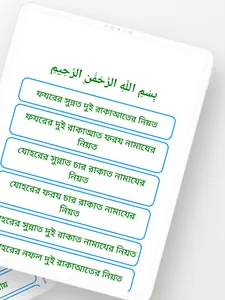 بِسْمِ اللَّهِ الرَّحْمَٰنِ الرَّحِيمِ
ফযরের সুন্নত দুই রাকাআতের নিয়ত
ফযরের দুই রাকাআত ফরয নামাযের
নিয়ত
যোহরের সুন্নাত চার রাকাত নামাযের
নিয়ত
যোহরের ফরয চার রাকাত নামাযের
নিয়ত
হরের সুন্নাত দুই রাকাত নামাযের নিয়ত
হরের নফল দুই রাকাআতের নিয়ত